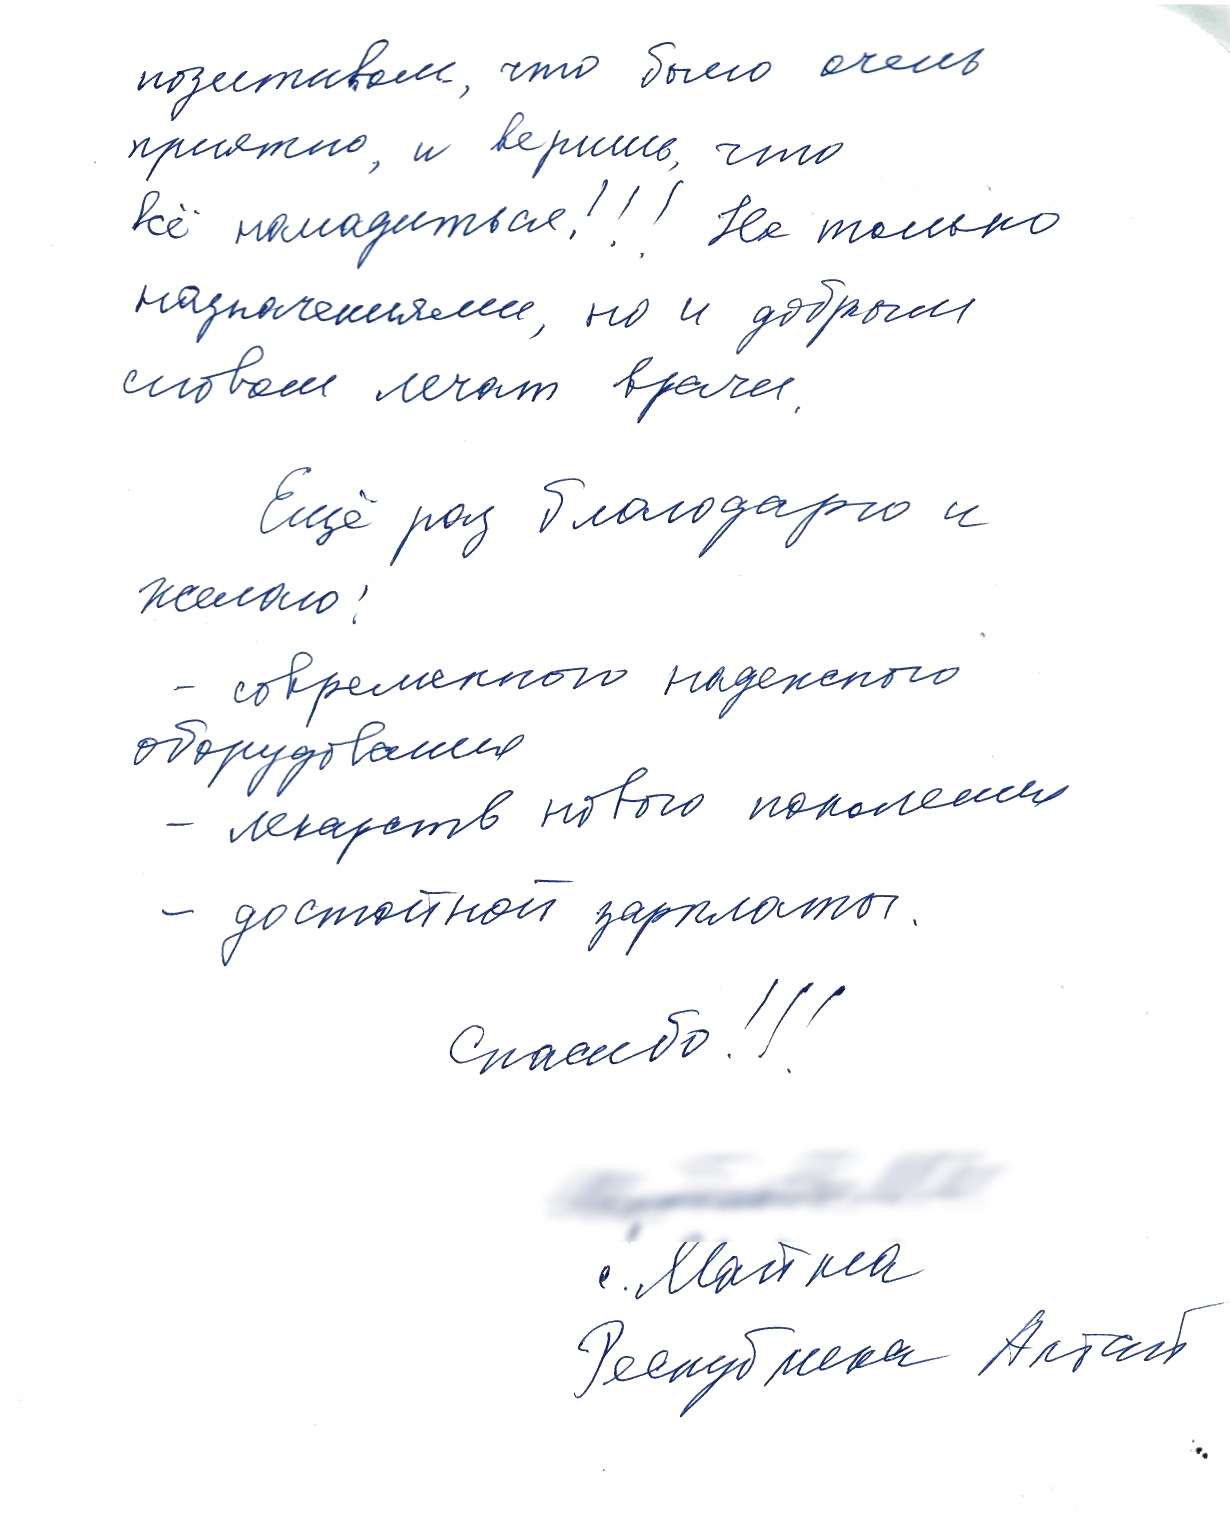 позитивом, что было очень
приятно, и веришь, что
всё наладиться!!! Не только
назначениями, но и добрым
словом лечат врачи.
Ещё раз благодарю и
желаю:
- современного надежного
оборудования
- лекарств нового поколения
- достойной зарплаты.
Спасибо!!!
с. Майма
Республика Алтай